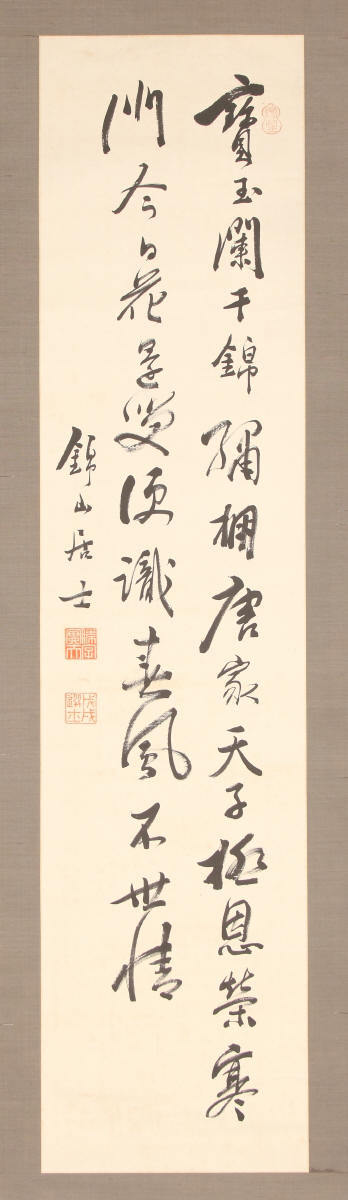 寶玉瀾干錦繡棚唐家天子極恩榮寒
門今日花是變便識春風不世情
錦山居士